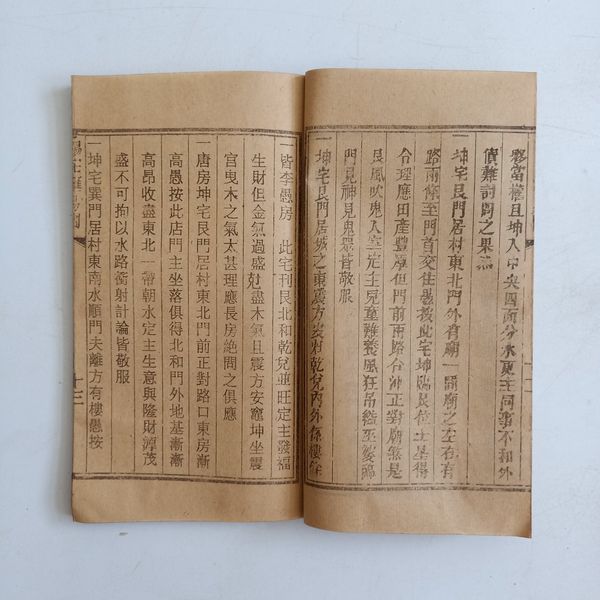 夥當權且坤入中央四面分水更主同事不和外
債難討問之果然
一坤宅艮門居村東北門外有廟一間廟之左右有
路兩條至門首交住愚按此宅坤臨艮位土星得
令理應田產豐厚但門前兩路合沖正對廟煞是
艮風吹鬼入室定主兒童難養風狂吊縊至變臨
門見神見鬼果皆敬服
一坤宅艮門居城之東震方安灶乾兌內外俱樓
一皆李愚房 此宅刊艮北和乾兌並旺定主發福
生財但金氣過盛尅盡木氣且震方安竈坤坐震
宮曳木之氣太甚理應長房絶問之俱應
一唐房坤宅艮門居村東北門前正對路口東房漸
高愚按此店門主坐落俱得北和門外地基漸漸
高昂收盡東北一帶朝水定主生意興隆財源茂
盛不可拘以水路衝射計論皆敬服
一坤宅巽門居村東南水順門夫離方有樓愚按
十三